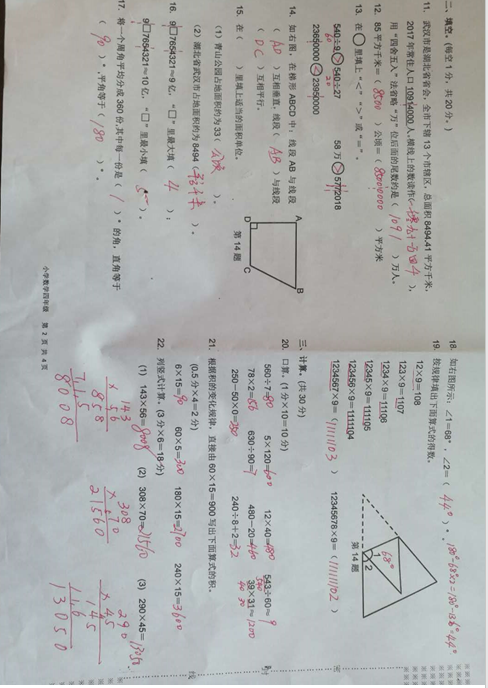 二、填空。(每空1分，共20分。)
11. 武汉市是湖北省省会，全市下辖13个市辖区，总面积8494.41平方千米，
2017年常住人口10914000人，横线上的数读作(
)，
用“四舍五入”法省略“万”位后面的尾数约是(1091)万人。
12. 85平方千米=(8500)公顷=(85000000)平方米
13. 在○里填上“<”“>”或“=”。
540÷9 > 540÷27 58万 > 572018
60 20
23650000 < 23950000
14. 如右图，在梯形ABCD中，线段AB与线段
(AD)互相垂直，线段(AB)与线段
(DC)互相平行。
A B C D
第14题
15. 在( )里填上适当的面积单位。
(1)青山公园占地面积约为33(公顷)。
(2)湖北省武汉市占地面积约为8494(平方千米)。
16. 9□7654321≈9亿，“□”里最大填(4)；
9□7654321≈10亿，“□”里最小填(5)。
17. 将一个周角平均分成360份，其中每一份是(1)°的角，直角等于
(90)°，平角等于(180)°。
小学数学四年级 第2页 共4页
18. 如右图所示，∠1=68°，∠2=(44°)°。 180°-68°×2=180°-136°=44°
68° 1 2
第14题
19. 按规律写出下面算式的得数。
12×9=108
123×9=1107
1234×9=11106
12345×9=111105
123456×9=1111104
1234567×9=(11111103) 12345678×9=(111111102)
三、计算。(共30分)
20. 口算。(1分×10=10分)
560÷7=80 5×120=600 12×40=480 543÷60≈9
540
78×2=156 630÷90=7 480-20=460 39×31≈1200
40 30
250-50×0=250 240÷8+2=32
21. 根据积的变化规律，直接由60×15=900写出下面算式的积。
(0.5分×4=2分)
6×15=90 60×5=300 180×15=2700 240×15=3600
22. 列竖式计算。(3分×6=18分)
(1) 143×56=8008 (2) 308×70=21560 (3) 290×45=13050
143 308 290
×56 ×70 ×45
858 21560 145
715 116
8008 13050